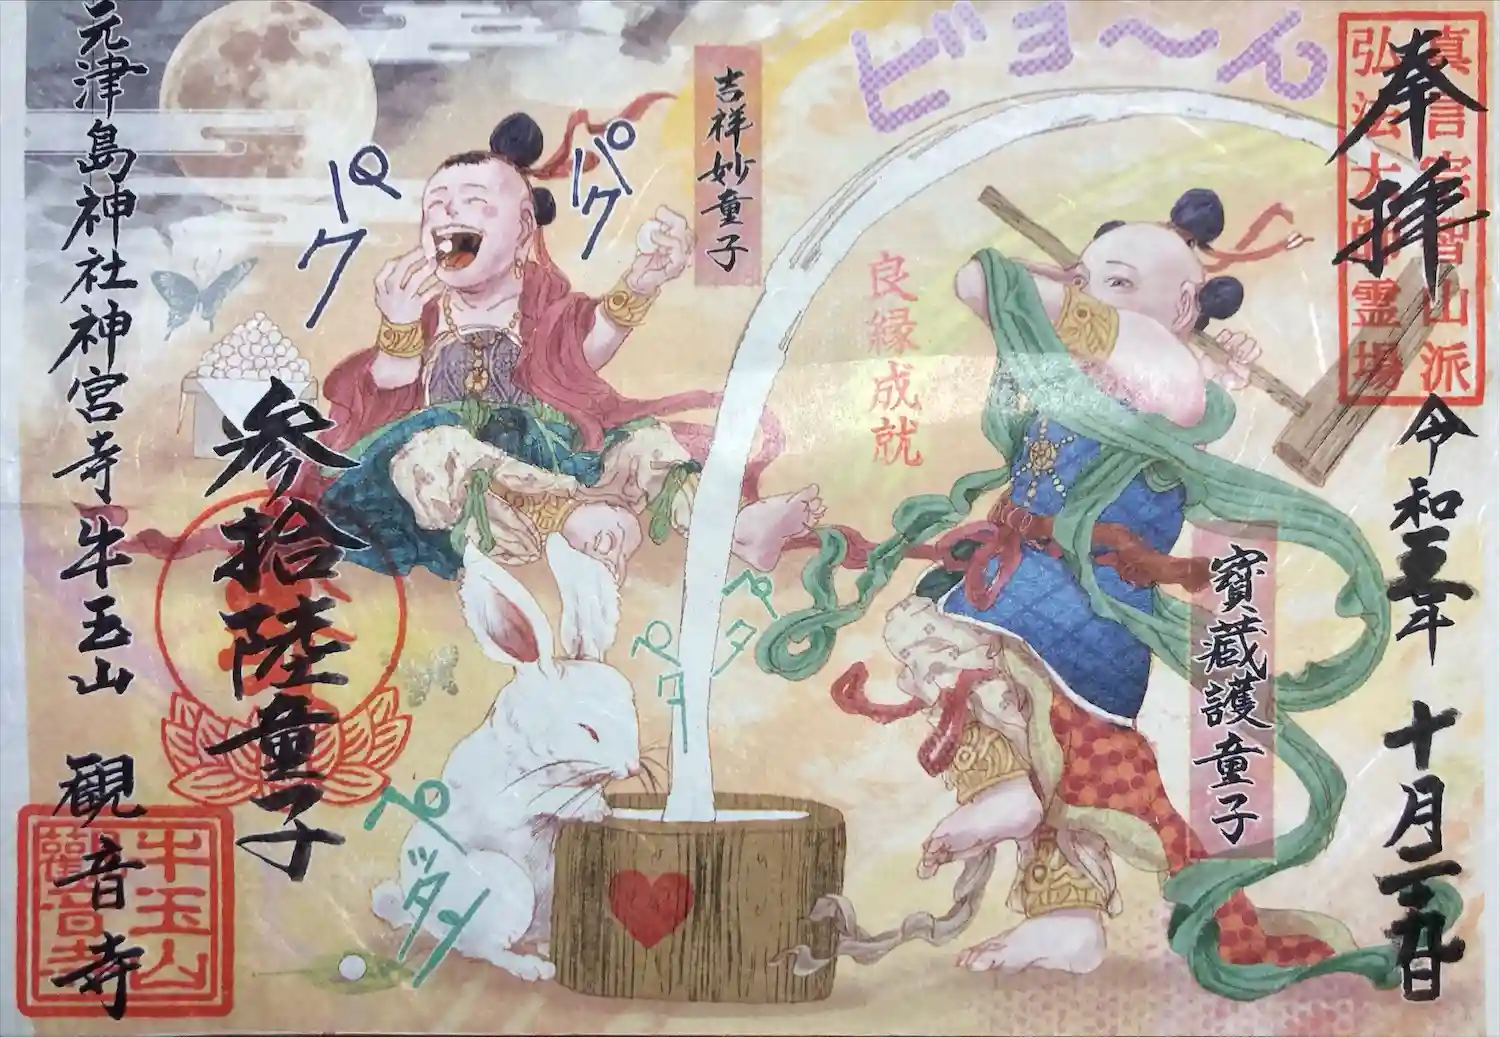 奉拝
真言宗智山派
弘法大師霊場
令和三年 十月二十日
ビヨ〜ん
寳蔵護童子
良縁成就
吉祥妙童子
パク
パク
ペタ
ペタ
ペッタン
参拾陸童子
元津島神社神宮寺牛玉山 観音寺
牛玉山
觀音寺